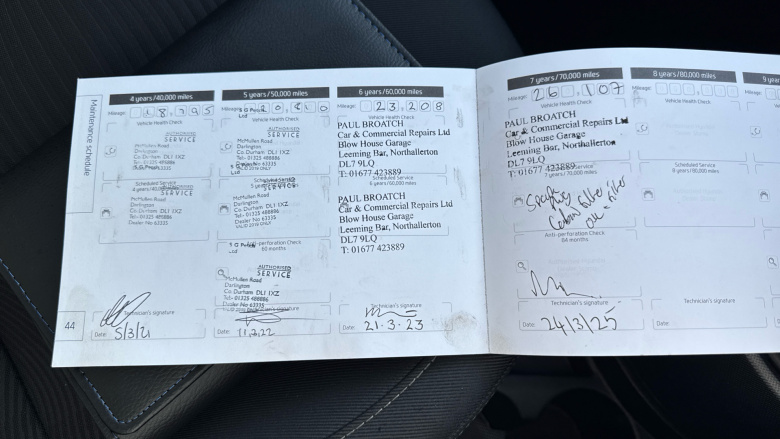 Maintenance schedule
44
4 years/40,000 miles
Mileage: 18,795
Vehicle Health Check
AUTHORISED
SERVICE
McMullen Road
Darlington
Co. Durham DL1 1XZ
Tel:- 01325 488886
Scheduled Service
SERVICE
McMullen Road
Darlington
Co. Durham DL1 1XZ
Tel:- 01325 488886
Dealer No 63335
Technician's signature
Date: 5/3/21
5 years/50,000 miles
Mileage:
Ltd
Vehicle Health Check
AUTHORISED
SERVICE
McMullen Road
Darlington
Co. Durham DL1 1XZ
Tel:- 01325 488886
Dealer No 63335
Scheduled Service
SERVICE
McMullen Road
Darlington
Co. Durham DL1 1XZ
Tel:- 01325 488886
Dealer No 63335
VALID 2019 ONLY
Anti-perforation Check
60 months
AUTHORISED
SERVICE
McMullen Road
Darlington
Co. Durham DL1 1XZ
Tel:- 01325 488886
Dealer No 63335
Technician's signature
Date: 11.3.22
6 years/60,000 miles
Mileage: 23,208
Vehicle Health Check
PAUL BROATCH
Car & Commercial Repairs Ltd
Blow House Garage
Leeming Bar, Northallerton
DL7 9LQ
T: 01677 423889
Scheduled Service
6 years/60,000 miles
PAUL BROATCH
Car & Commercial Repairs Ltd
Blow House Garage
Leeming Bar, Northallerton
DL7 9LQ
T: 01677 423889
Technician's signature
Date: 21.3.23
7 years/70,000 miles
Mileage: 26,107
Vehicle Health Check
PAUL BROATCH
Car & Commercial Repairs Ltd
Blow House Garage
Leeming Bar, Northallerton
DL7 9LQ
T: 01677 423889
7 years/70,000 miles
Spark
Plug
Cabin Filter
Oil + Filter
Anti-perforation Check
84 months
Technician's signature
Date: 24/3/25
8 years/80,000 miles
Mileage:
Vehicle Health Check
Scheduled Service
8 years/80,000 miles
Technician's signature
Date:
9 y
Mileage: